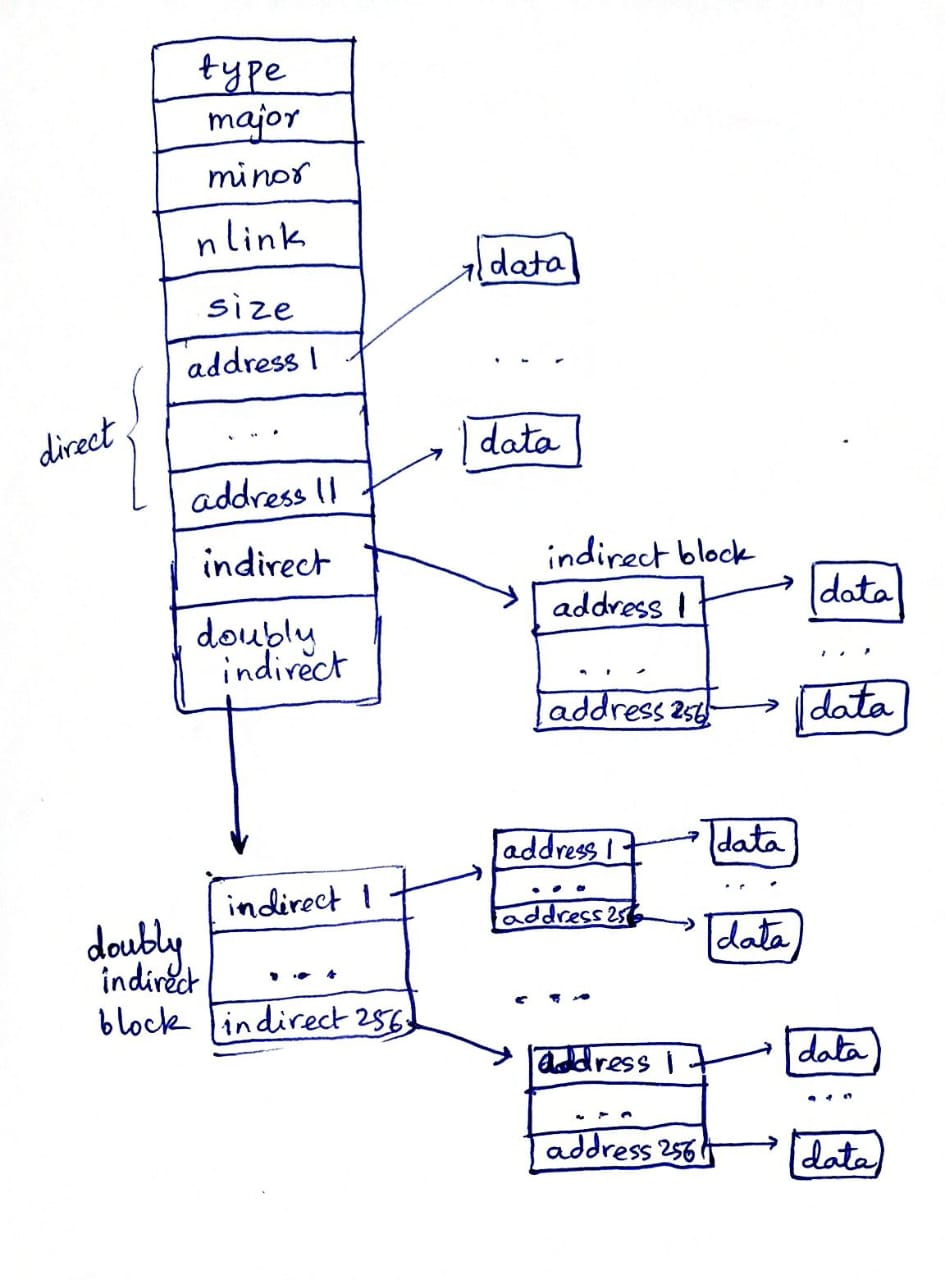 type
major
minor
nlink
size
address 1
...
address 11
direct
indirect
doubly
indirect
data
...
data
indirect block
address 1
...
address 256
data
...
data
doubly
indirect
block
indirect 1
...
indirect 256
address 1
...
address 256
data
...
data
...
address 1
...
address 256
data
...
data